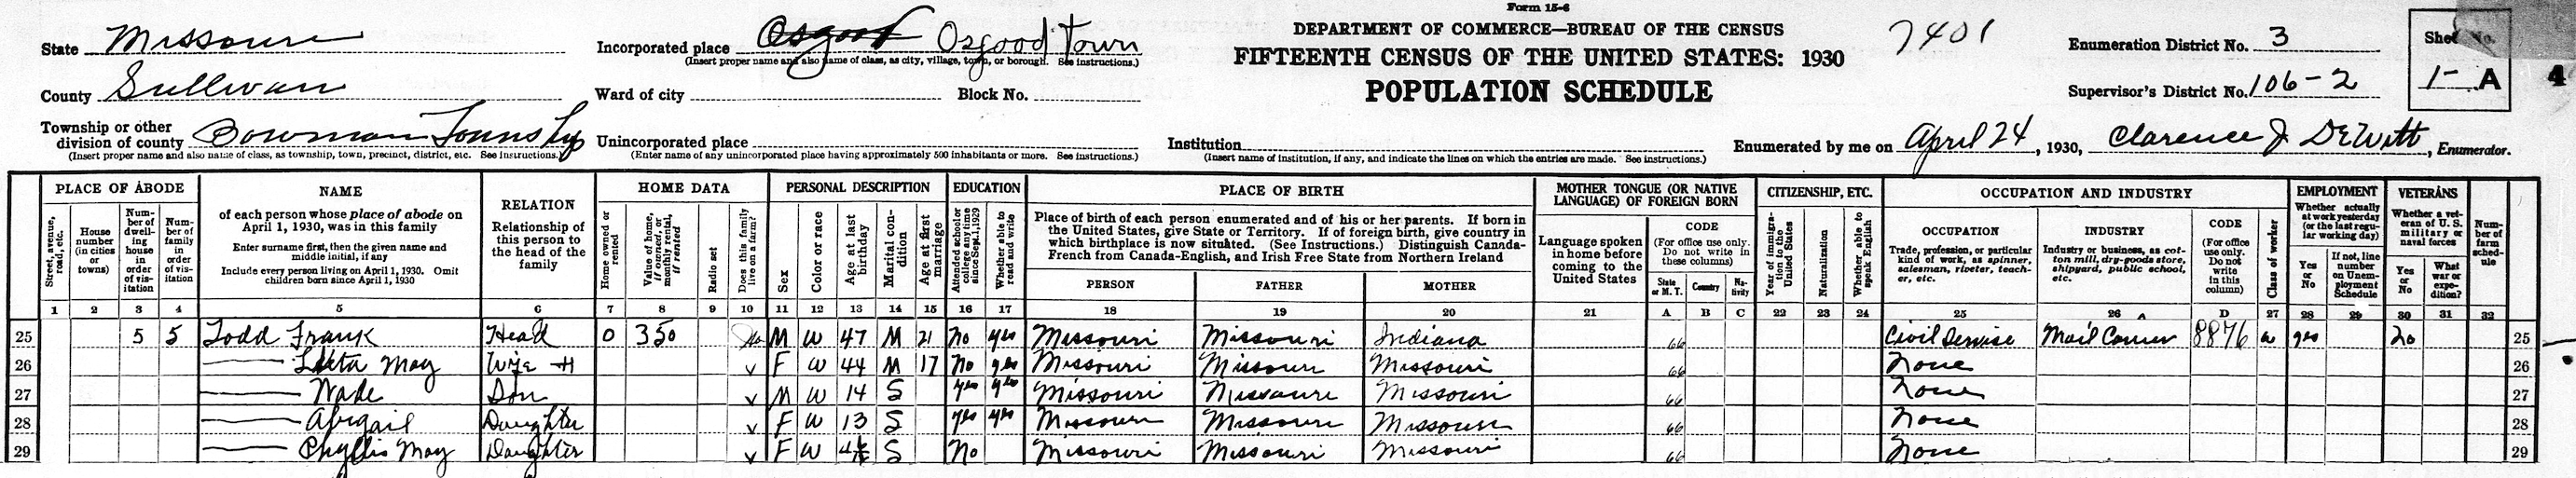 Form 15-6
State Missouri
Incorporated place Osgood Osgood Town
(Insert proper name and also name of class, as city, village, town, or borough. See instructions.)
DEPARTMENT OF COMMERCE—BUREAU OF THE CENSUS
FIFTEENTH CENSUS OF THE UNITED STATES: 1930
POPULATION SCHEDULE
7401
Enumeration District No. 3
Supervisor's District No. 106-2
Sheet No.
1- A
4
County Sullivan
Ward of city
Block No.
Township or other division of county Bowman Township
(Insert proper name and also name of class, as township, town, precinct, district, etc. See instructions.)
Unincorporated place
(Enter name of any unincorporated place having approximately 500 inhabitants or more. See instructions.)
Institution
(Insert name of institution, if any, and indicate the lines on which the entries are made. See instructions.)
Enumerated by me on April 24, 1930, Clarence J DeWitt, Enumerator.
PLACE OF ABODE
Street, avenue, road, etc.
House number (in cities or towns)
Number of dwelling house in order of visitation
Number of family in order of visitation
NAME
of each person whose place of abode on April 1, 1930, was in this family
Enter surname first, then the given name and middle initial, if any
Include every person living on April 1, 1930. Omit children born since April 1, 1930
RELATION
Relationship of this person to the head of the family
HOME DATA
Home owned or rented
Value of home, if owned, or monthly rental, if rented
Radio set
Does this family live on a farm?
PERSONAL DESCRIPTION
Sex
Color or race
Age at last birthday
Marital condition
Age at first marriage
EDUCATION
Attended school or college any time since Sept. 1, 1929
Whether able to read and write
PLACE OF BIRTH
Place of birth of each person enumerated and of his or her parents. If born in the United States, give State or Territory. If of foreign birth, give country in which birthplace is now situated. (See Instructions.) Distinguish Canada-French from Canada-English, and Irish Free State from Northern Ireland
PERSON
FATHER
MOTHER
MOTHER TONGUE (OR NATIVE LANGUAGE) OF FOREIGN BORN
Language spoken in home before coming to the United States
CODE
(For office use only. Do not write in these columns)
State or M. T.
Country
Nativity
CITIZENSHIP, ETC.
Year of immigration to the United States
Naturalization
Whether able to speak English
OCCUPATION AND INDUSTRY
OCCUPATION
Trade, profession, or particular kind of work, as spinner, salesman, riveter, teacher, etc.
INDUSTRY
Industry or business, as cotton mill, dry-goods store, shipyard, public school, etc.
CODE
(For office use only. Do not write in this column)
Class of worker
EMPLOYMENT
Whether actually at work yesterday (or the last regular working day)
Yes or No
If not, line number on Unemployment Schedule
VETERANS
Whether a veteran of U. S. military or naval forces
Yes or No
What war or expedition?
Number of farm schedule
1 2 3 4 5 6 7 8 9 10 11 12 13 14 15 16 17 18 19 20 21 A B C 22 23 24 25 26 D 27 28 29 30 31 32
25 5 5 Todd Frank Head O 350 No M W 47 M 21 No yes Missouri Missouri Indiana 66 Civil Service Mail Carrier 8876 w yes No 25
26 May Wife H v F W 44 M 17 No yes Missouri Missouri Missouri 66 None 26
27 Wade Son v M W 14 S yes yes Missouri Missouri Missouri 66 None 27
28 Abigail Daughter v F W 13 S yes yes Missouri Missouri Missouri 66 None 28
29 Phyllis May Daughter v F W S No Missouri Missouri Missouri 66 None 29